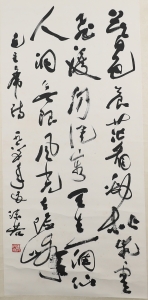 暮色苍茫看劲松乱云
飞渡仍从容天生一个仙
人洞无限风光在险峰
毛主席诗